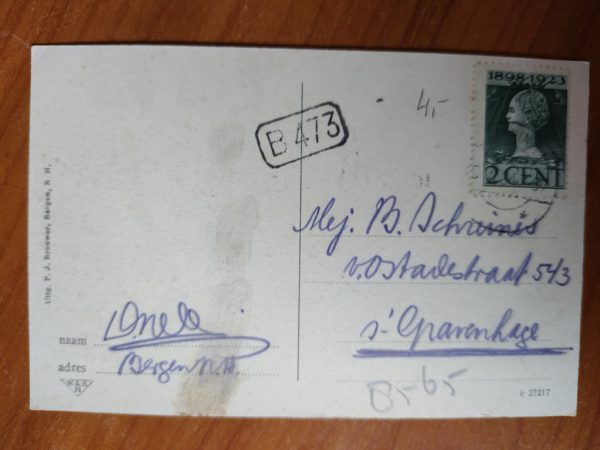 1898-1923
2 CENT
4,-
B 473
Mej. B. Schrieines
v. Ostadestraat 543
s' Gravenhage
Uitg. P. J. Brouwer, Bergen, N. H.
naam
adres Bergen N.H.
B5-65
c 27217